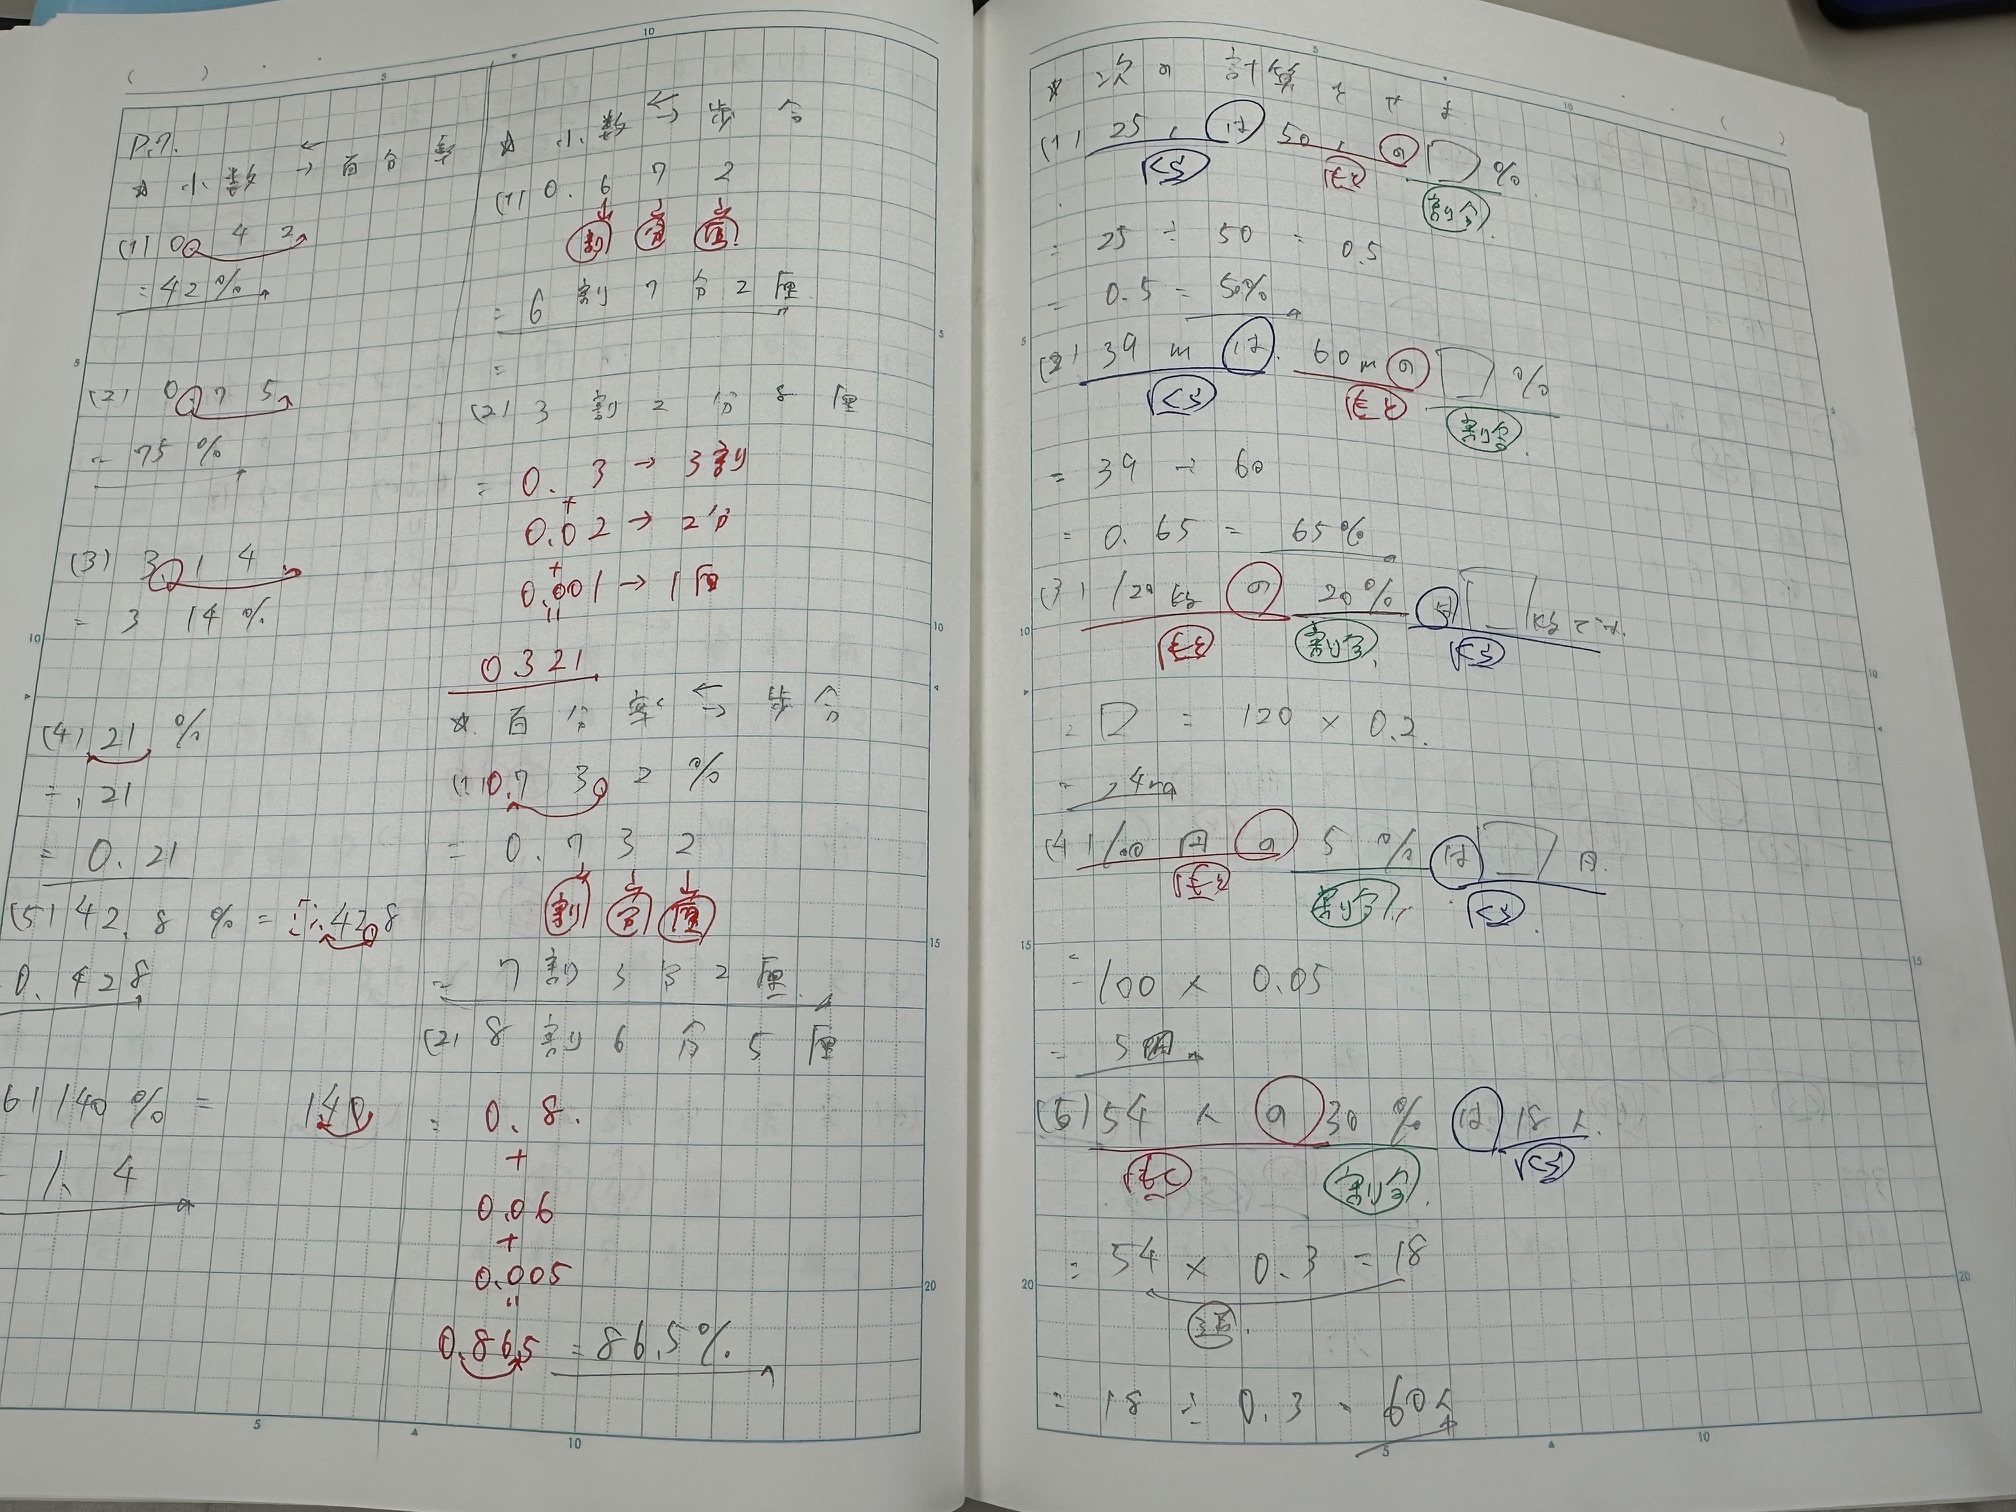 P.7.
☆ 小数 ⇄ 百分率
(1) 0.42
= 42%
(2) 0.75
= 75%
(3) 3.14
= 314%
(4) 21%
= .21
= 0.21
(5) 42.8% = 0.428
0.428
6) 140% = 140
= 1.4
☆ 小数 ⇄ 歩合
(1) 0.672
割 分 厘
= 6割7分2厘
=
(2) 3割2分8厘
= 0.3 → 3割
+
0.02 → 2分
+
0.001 → 1厘
=
0.321
☆ 百分率 ⇄ 歩合
(1) 0.73.2%
= 0.732
割 分 厘
= 7割3分2厘
(2) 8割6分5厘
= 0.8.
+
0.06
+
0.005
=
0.865 = 86.5%
☆ 次の計算をせよ
(1) 25 は 50 の □%
くらべる もと 割合
= 25 ÷ 50 = 0.5
= 0.5 = 50%
(2) 39m は 60m の □%
割合
= 39 ÷ 60
= 0.65 = 65%
(3) 120kg の 20% は □kgです.
割合
= □ = 120 × 0.2
(4) 100円 の 5% は □円.
割合
= 100 × 0.05
= 5円
(5) 54人 の 30% は 18人.
割合
= 54 × 0.3 = 18
= 18 ÷ 0.3 = 60人